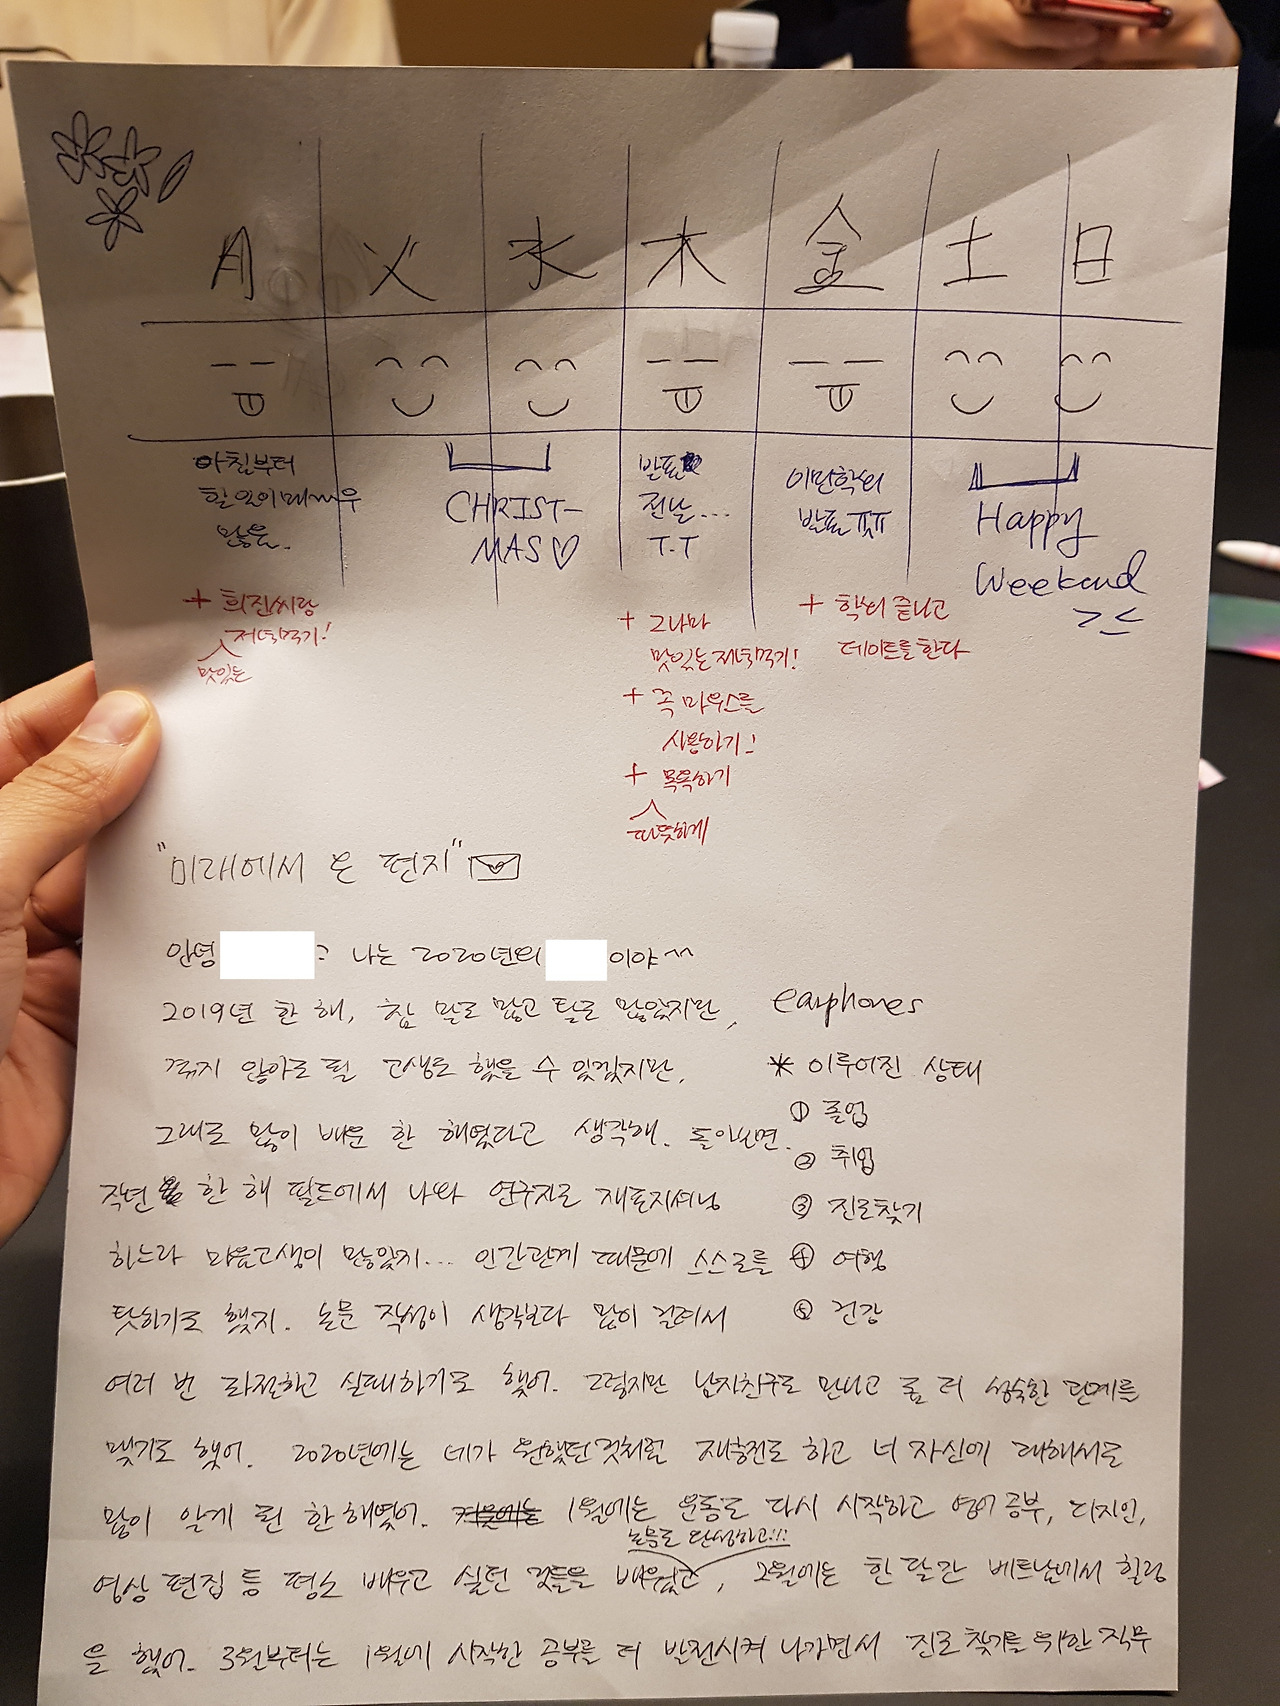 月 火 水 木 金 土 日
아침부터
할 일이 매애우
많음.
CHRIST-
MAS♡
발표
전날...
T.T
이만학회
발표 ㅠㅠ
Happy
Weekend
>_<
+ 희진씨랑
저녁먹기!
맛있는
+ 그나마
맛있는 저녁먹기!
+ 꼭 마우스를
사용하기!
+ 목욕하기
따뜻하게
+ 학회 끝나고
데이트를 한다
"미래에서 온 편지"
안녕 나는 2020년의 이야^^
2019년 한 해, 참 말도 많고 탈도 많았지만,
겪지 않아도 될 고생도 했을 수 있겠지만,
그래도 많이 배운 한 해였다고 생각해. 돌아보면.
작년 한 해 필드에서 나와 연구자로 재포지셔닝
하느라 마음고생이 많았지... 인간관계 때문에 스스로를
탓하기도 했지. 논문 작성이 생각보다 많이 걸려서
earphones
* 이루어진 상태
① 졸업
② 취업
③ 진로찾기
④ 여행
⑤ 건강
여러 번 좌절하고 실패하기도 했어. 그렇지만 남자친구도 만나고 좀 더 성숙한 관계를
맺기도 했어. 2020년에는 네가 원했던 것처럼 재충전도 하고 너 자신에 대해서도
많이 알게 된 한 해였어. 1월에는 운동도 다시 시작하고 영어 공부, 디자인,
논문도 완성하고!!!
영상 편집 등 평소 배우고 싶던 것들을 배웠고, 2월에는 한 달간 베트남에서 힐링
을 했어. 3월부터는 1월에 시작한 공부를 더 발전시켜 나가면서 진로 찾기를 위한 직무